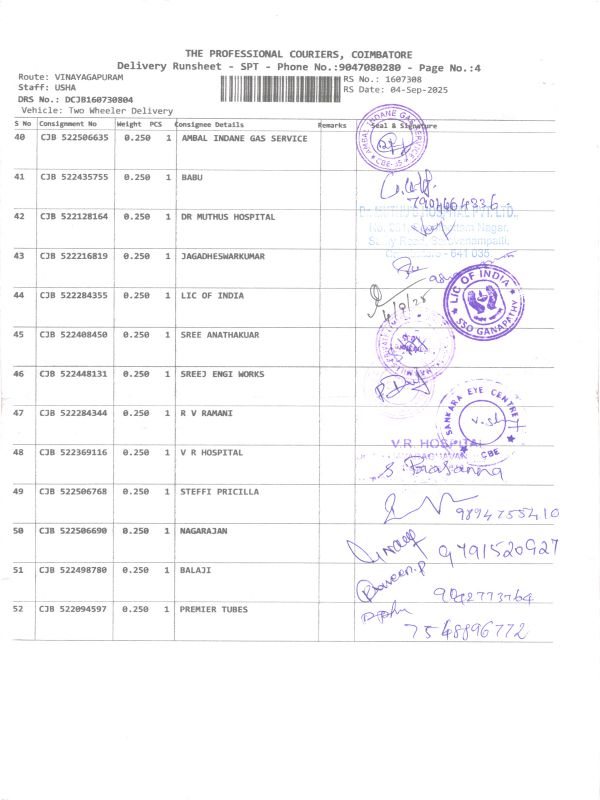 THE PROFESSIONAL COURIERS, COIMBATORE
Delivery Runsheet - SPT - Phone No.:9047080280 - Page No.:4
Route: VINAYAGAPURAM
RS No.: 1607308
Staff: USHA
RS Date: 04-Sep-2025
DRS No.: DCJB160730804
Vehicle: Two Wheeler Delivery
S No Consignment No Weight PCS Consignee Details Remarks Seal & Signature
40 CJB 522506635 0.250 1 AMBAL INDANE GAS SERVICE
AMBAL INDANE GAS SERVICE CBE-35
41 CJB 522435755 0.250 1 BABU
7904664836
42 CJB 522128164 0.250 1 DR MUTHUS HOSPITAL
43 CJB 522216819 0.250 1 JAGADHESWARKUMAR
44 CJB 522284355 0.250 1 LIC OF INDIA
4/9/25
LIC OF INDIA SSO GANAPATHY
45 CJB 522408450 0.250 1 SREE ANATHAKUAR
46 CJB 522448131 0.250 1 SREEJ ENGI WORKS
47 CJB 522284344 0.250 1 R V RAMANI
SANKARA EYE CENTRE CBE
48 CJB 522369116 0.250 1 V R HOSPITAL
V.R. HOSPITAL
S. Prasanna
49 CJB 522506768 0.250 1 STEFFI PRICILLA
9894755410
50 CJB 522506690 0.250 1 NAGARAJAN
9791520927
51 CJB 522498780 0.250 1 BALAJI
Praveen.P
9042773764
52 CJB 522094597 0.250 1 PREMIER TUBES
7548896772